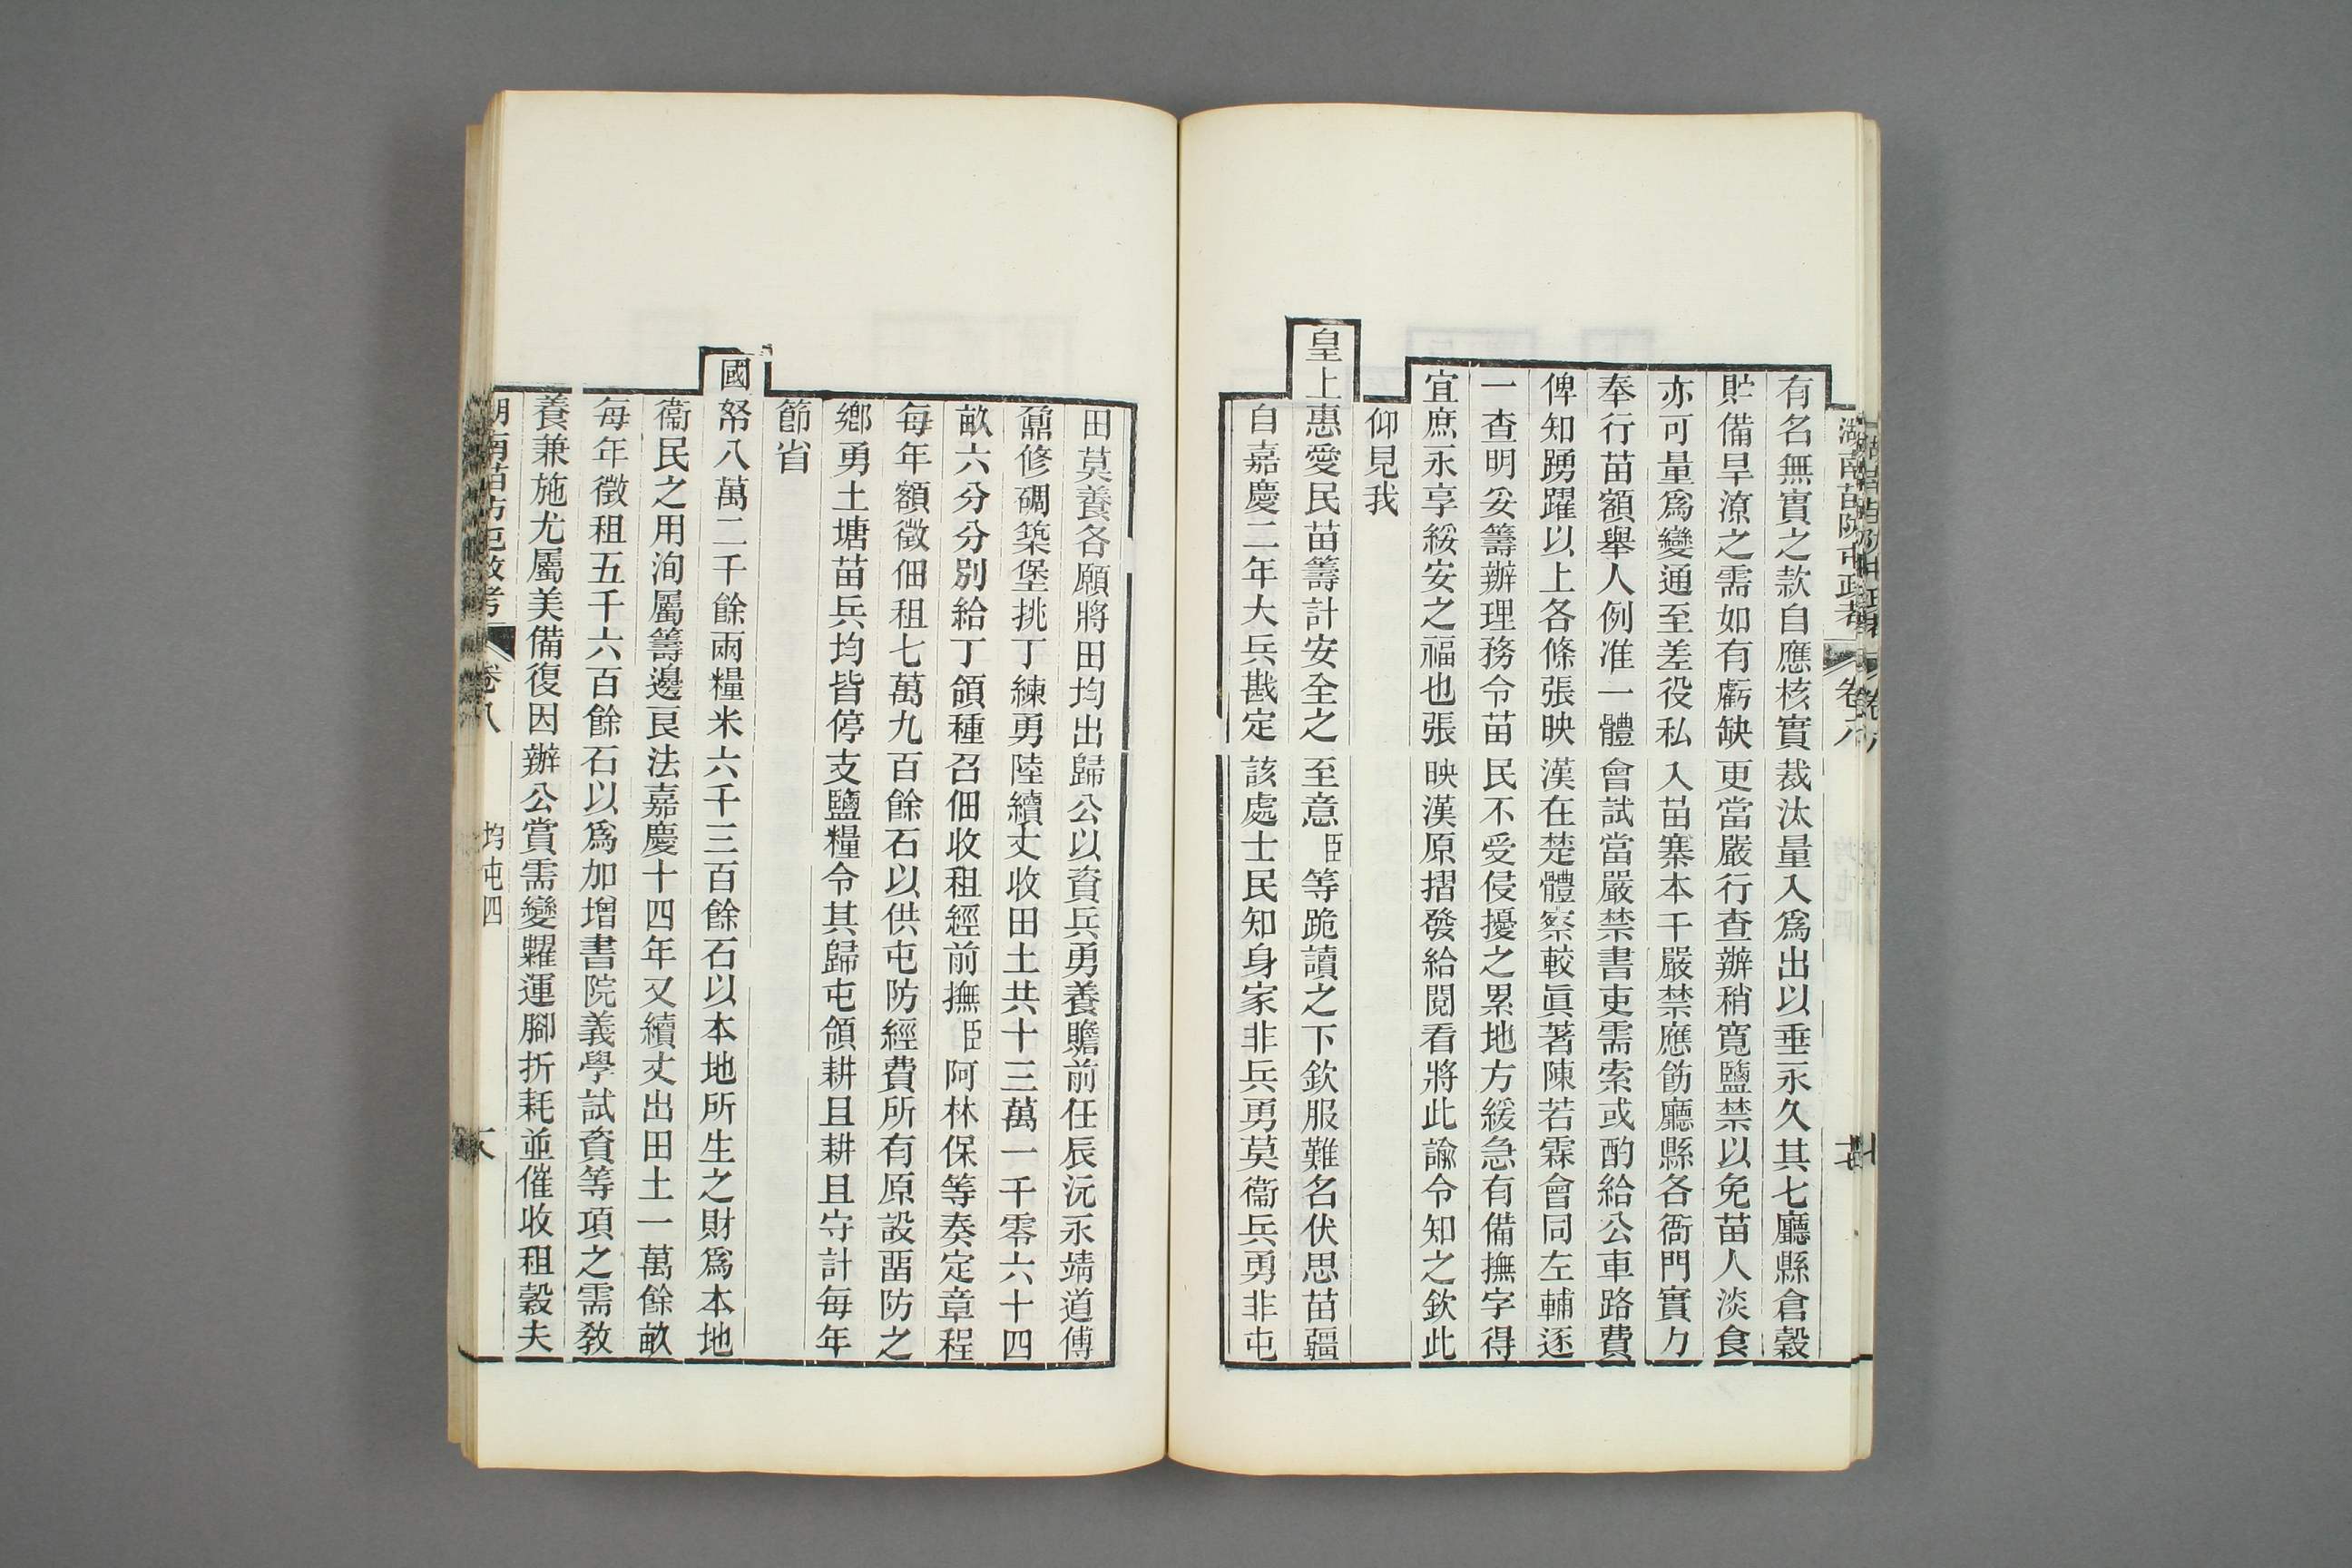 湖南苗防屯政考 卷八
有名無實之款自應核實裁汰量入爲出以垂永久其七廳縣倉穀
貯備旱潦之需如有虧缺更當嚴行查辦稍寬鹽禁以免苗人淡食
亦可量爲變通至差役私入苗寨本干嚴禁應飭廳縣各衙門實力
奉行苗額舉人例准一體會試當嚴禁書吏需索或酌給公車路費
俾知踴躍以上各條張映漢在楚體察較眞著陳若霖會同左輔逐
一查明妥籌辦理務令苗民不受侵擾之累地方緩急有備撫字得
宜庶永享綏安之福也張映漢原摺發給閱看將此諭令知之欽此
仰見我
皇上惠愛民苗籌計安全之至意臣等跪讀之下欽服難名伏思苗疆
自嘉慶二年大兵戡定該處士民知身家非兵勇莫衞兵勇非屯
田莫養各願將田均出歸公以資兵勇養贍前任辰沅永靖道傅
鼐修碉築堡挑丁練勇陸續丈收田土共十三萬一千零六十四
畝六分分別給丁領種召佃收租經前撫臣阿林保等奏定章程
每年額徵佃租七萬九百餘石以供屯防經費所有原設畱防之
鄉勇土塘苗兵均皆停支鹽糧令其歸屯領耕且耕且守計每年
節省
國帑八萬二千餘兩糧米六千三百餘石以本地所生之財爲本地
衞民之用洵屬籌邊良法嘉慶十四年又續丈出田土一萬餘畝
每年徵租五千六百餘石以爲加增書院義學試資等項之需敎
養兼施尤屬美備復因辦公賞需變糶運腳折耗並催收租穀夫
湖南苗防屯政考 卷八 均屯四